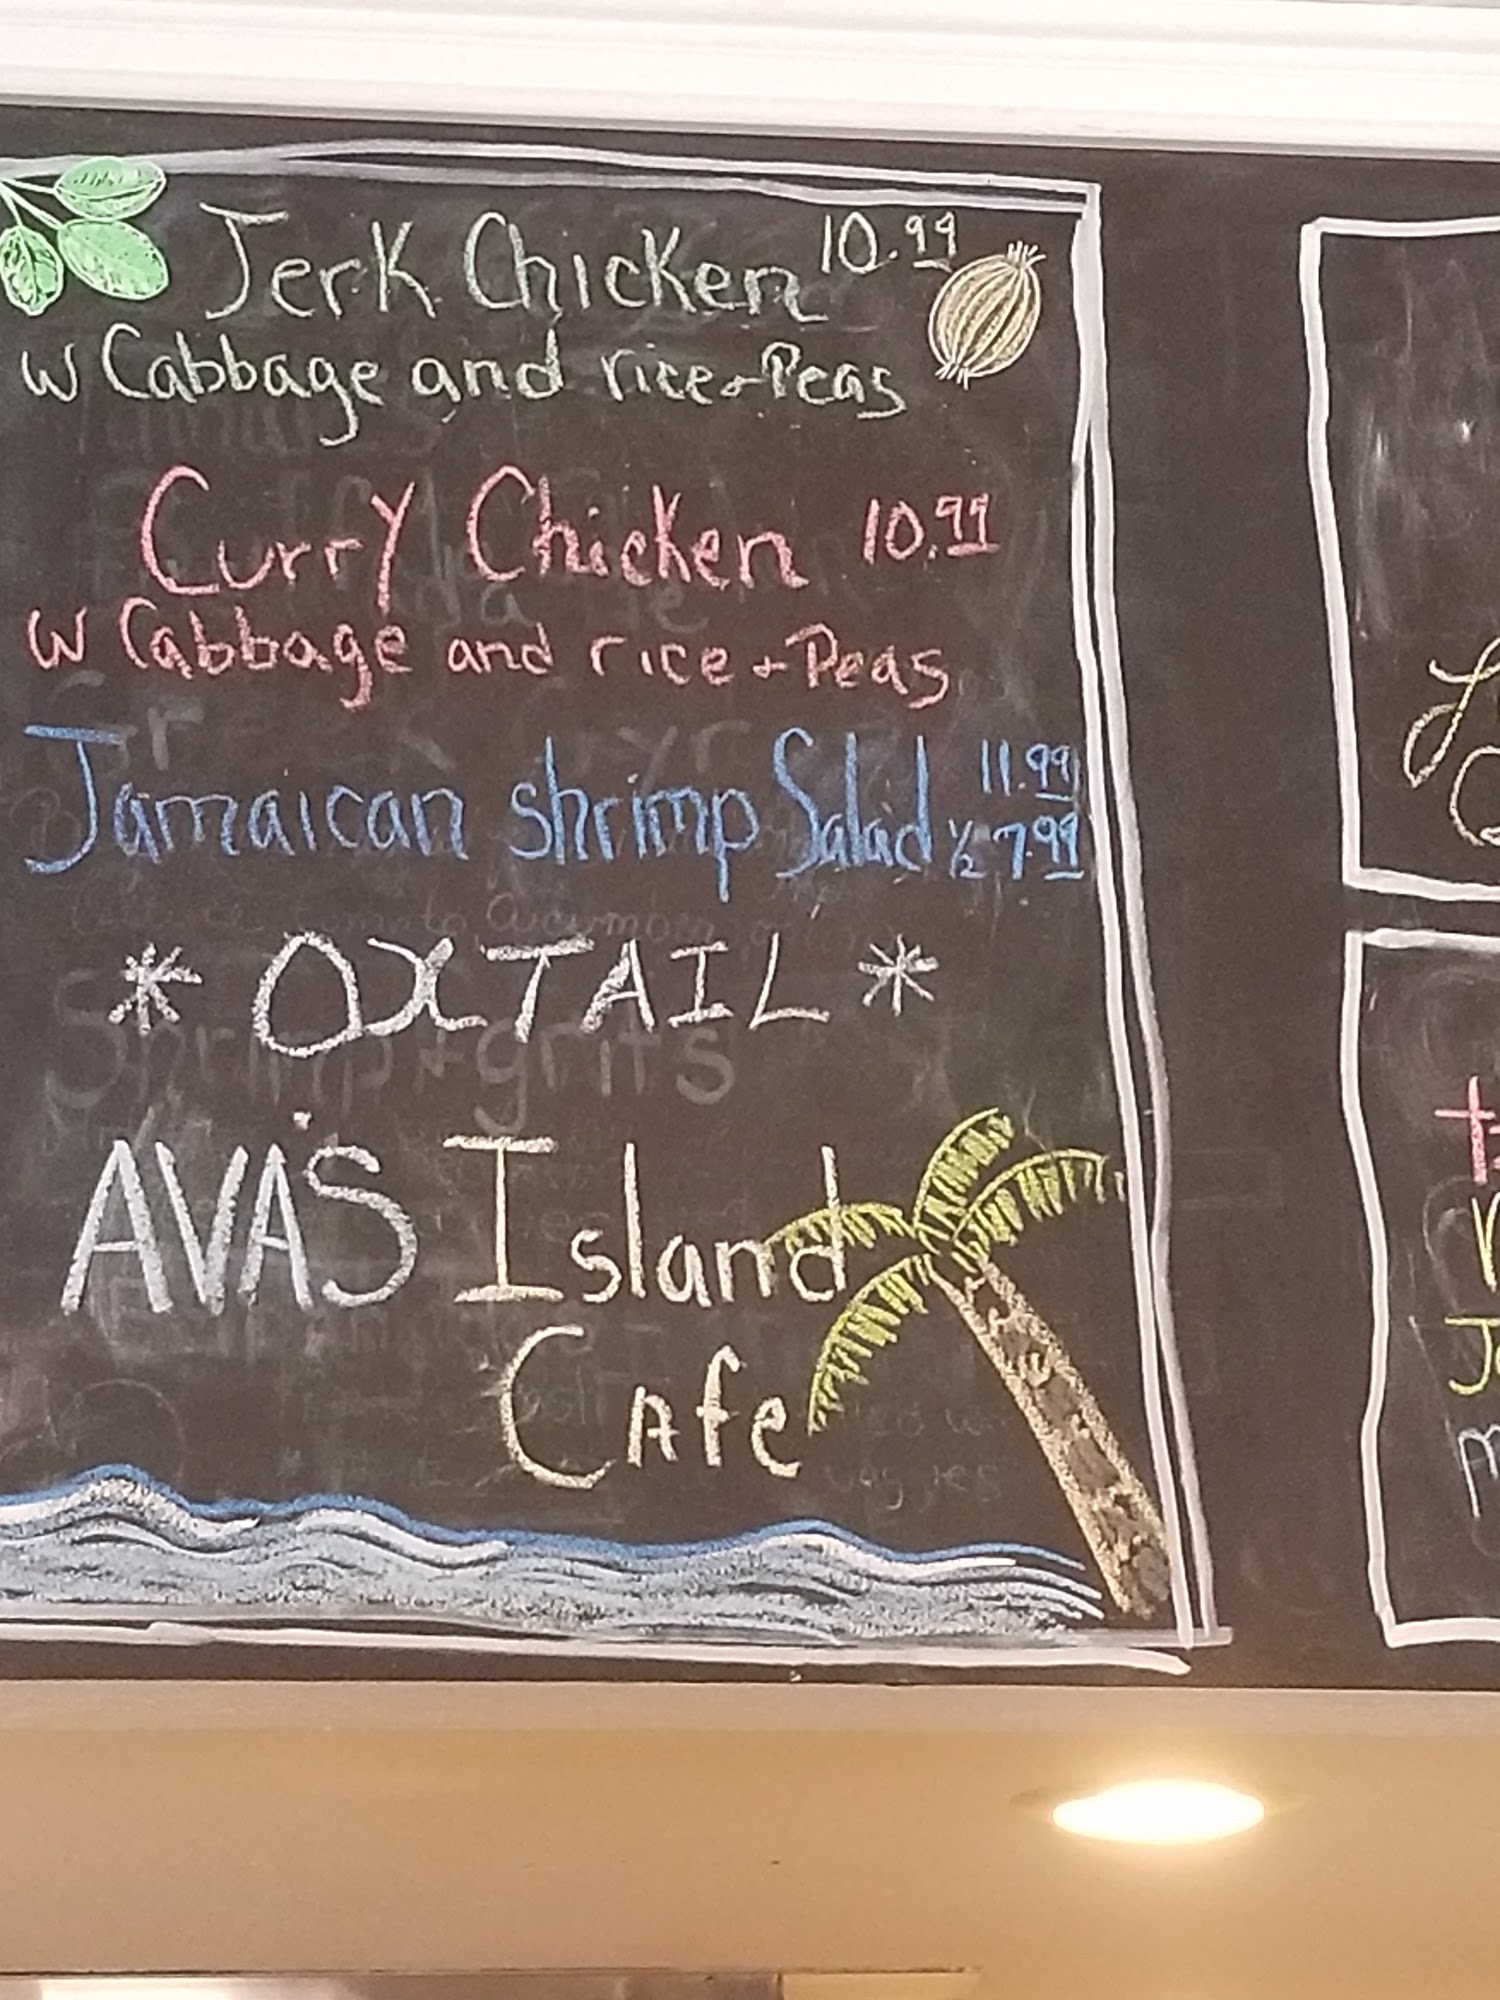 Jerk Chicken 10.99
w Cabbage and rice + Peas
Curry Chicken 10.99
w Cabbage and rice + Peas
Jamaican shrimp Salad 11.99
½ 7.99
* OXTAIL *
AVA'S Island
Cafe